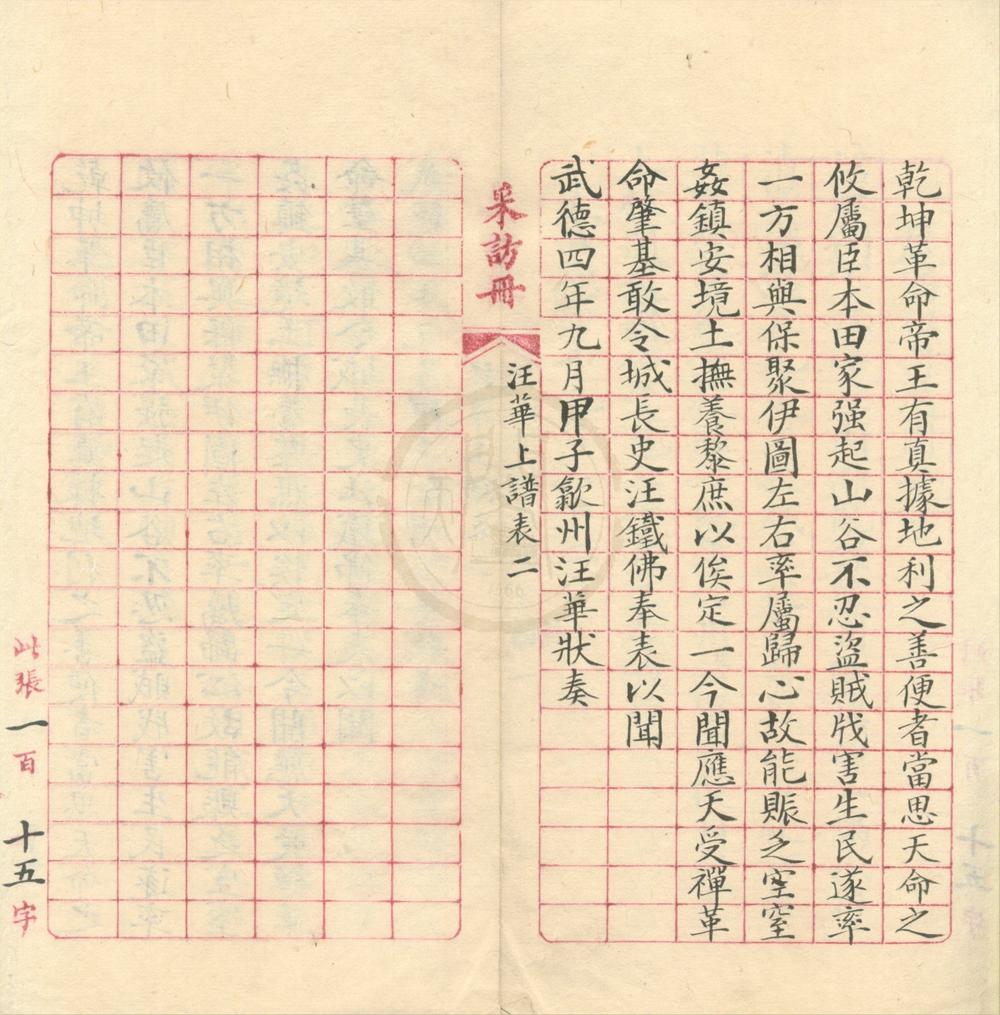 乾坤革命帝王有真據地利之善便者當思天命之
攸屬臣本田家强起山谷不忍盜賊戕害生民遂率
一方相與保聚伊圖左右率屬歸心故能賑乏窒窒
姦鎮安境土撫養黎庶以俟定一今聞應天受禪革
命肇基敢令城長史汪鐵佛奉表以聞
武德四年九月甲子歙州汪華狀奏
采訪冊
汪華上譜表二
此張一百十五字